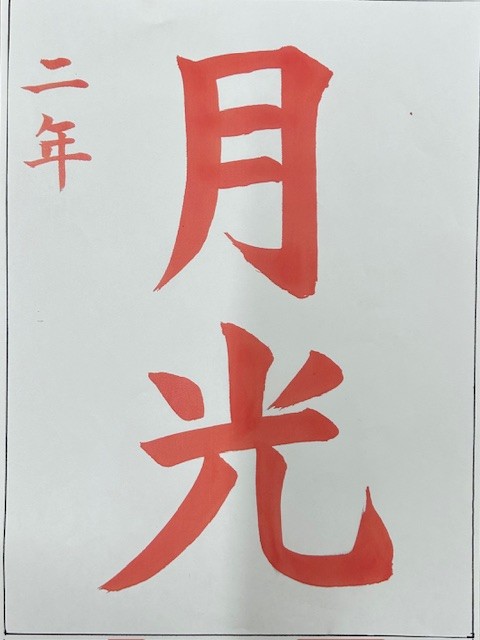 月光
二年